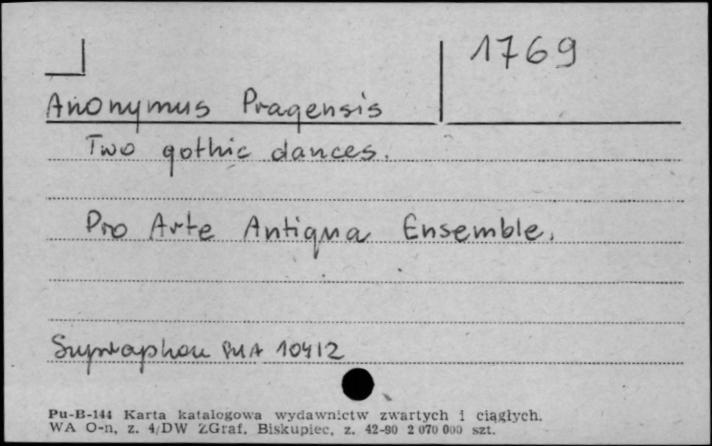 1769
Anonymus Pragensis
Two gothic dances.
Pro Arte Antiqua Ensemble.
Supraphon 10412
Pu-B-144 Karta katalogowa wydawnictw zwartych i ciągłych.
WA O-n, z. 4/DW ZGraf. Biskupiec, z. 42-80 2 070 000 szt.